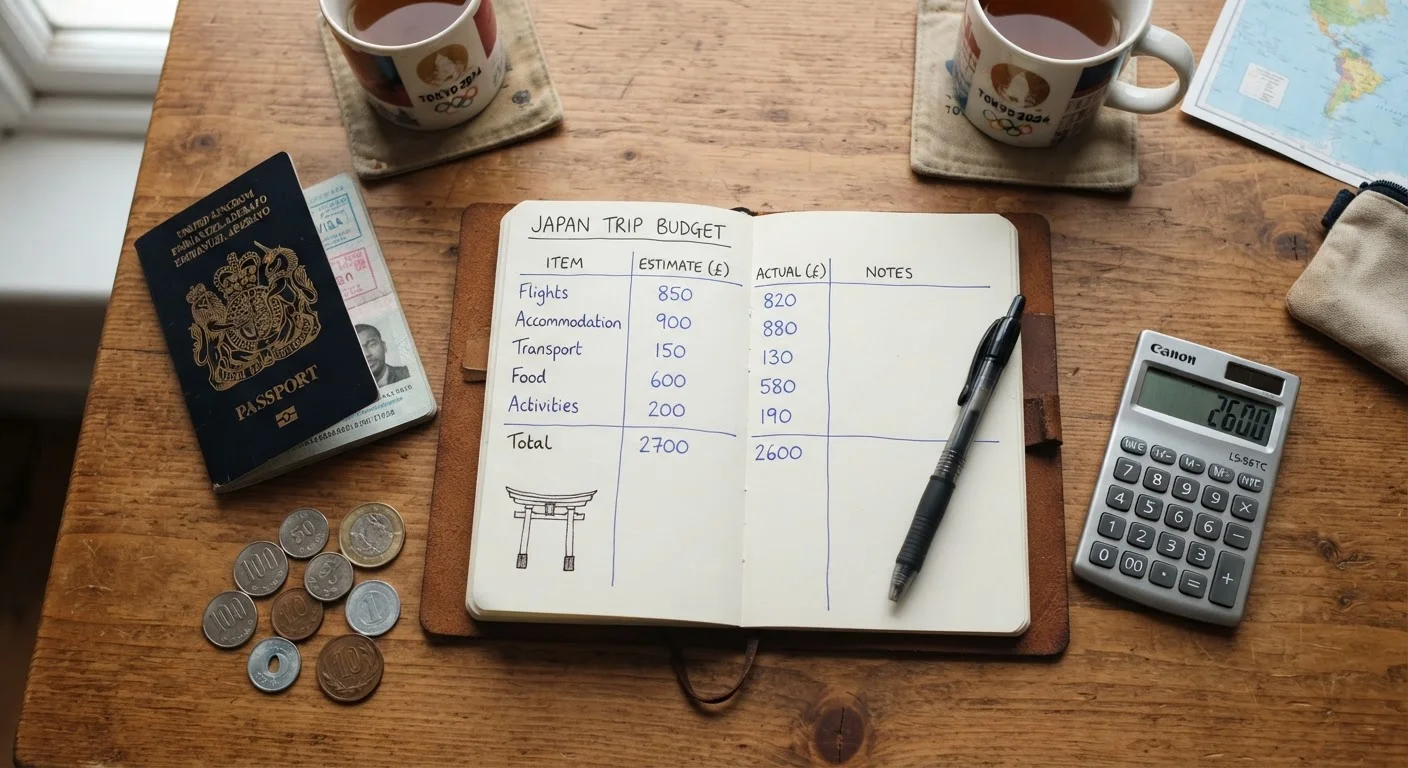 TOKYO 2024
PASSPORT
JAPAN TRIP BUDGET
ITEM ESTIMATE (£) ACTUAL (£) NOTES
Flights 850 820
Accommodation 900 880
Transport 150 130
Food 600 580
Activities 200 190
Total 2700 2600
50
100
100
10
1
10
Canon
2600
7 8 9 9 ×
4 5 6 6 −
1 2 3 3 +
0 00 . =